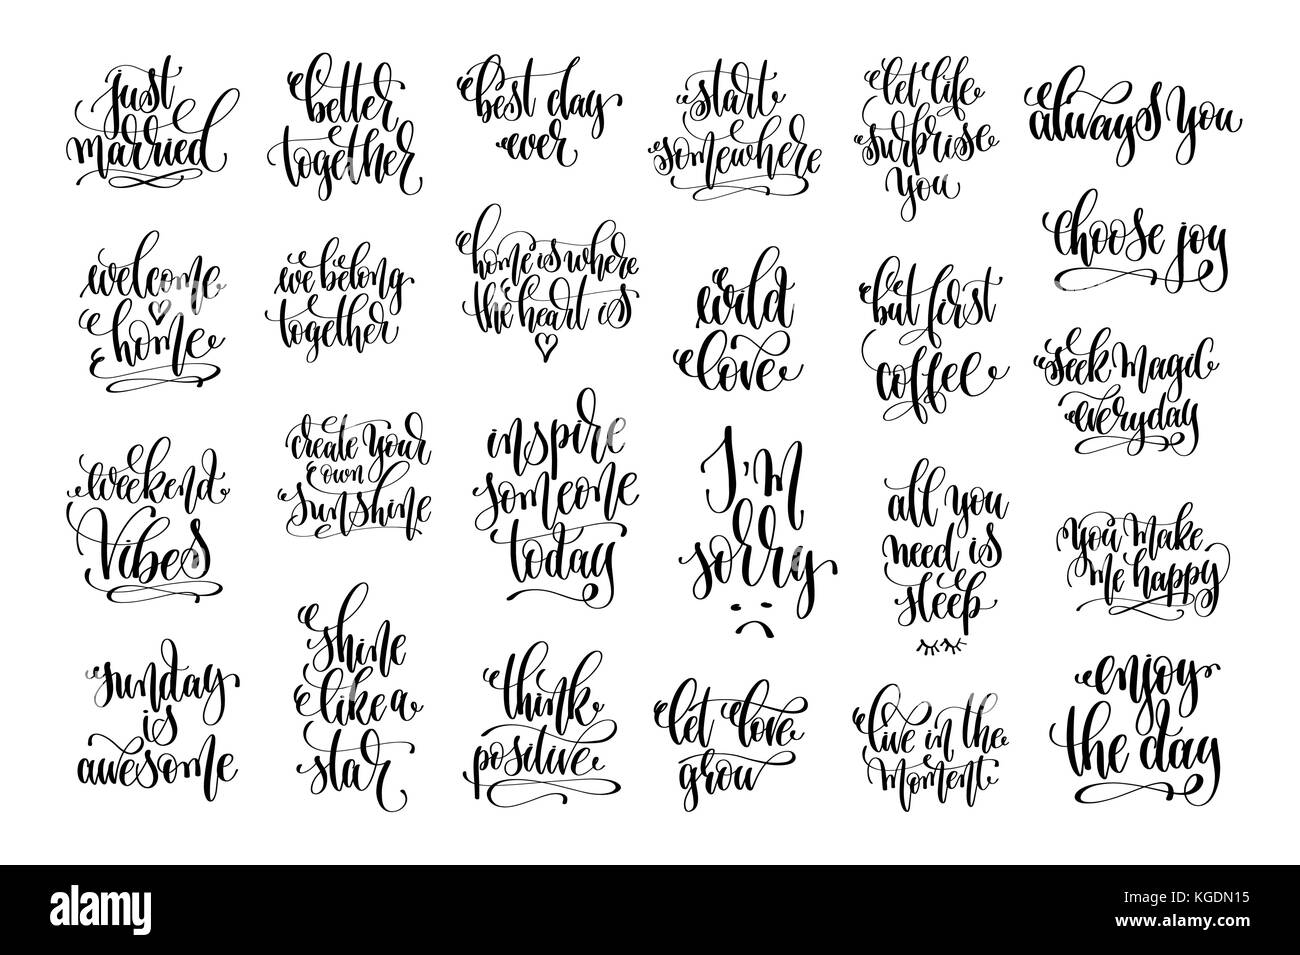 just
married
better
together
best day
ever
start
somewhere
let life
surprise
you
always you
welcome
home
we belong
together
home is where
the heart is
wild
love
but first
coffee
choose joy
seek magic
everyday
weekend
Vibes
create your
own
sunshine
inspire
someone
today
I'm
sorry
all you
need is
sleep
you make
me happy
sunday
is
awesome
shine
like a
star
think
positive
let love
grow
live in the
moment
enjoy
the day
alamy
Image ID: KGDN15
www.alamy.com